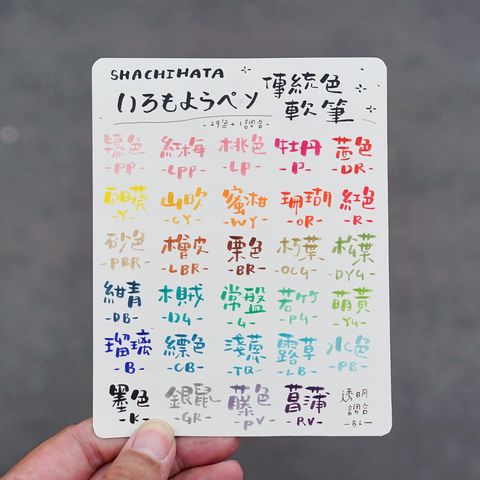 SHACHIHATA
いろもようペン 傳統色
軟筆
-29色+1調合-
鴇色 紅梅 桃色 牡丹 茜色
-PP- -LPP- -LP- -P- -DR-
向日葵 山吹 蜜柑 珊瑚 紅色
-Y- -CY- -WY- -OR- -R-
砂色 檜皮 栗色 朽葉 松葉
-PBR- -LBR- -BR- -OCG- -DYG-
紺青 木賊 常盤 若竹 萌黃
-DB- -DG- -G- -PG- -YG-
瑠璃 縹色 淺蔥 露草 水色
-B- -CB- -TQ- -LB- -PB-
墨色 銀鼠 藤色 菖蒲 透明
調合
-K- -GR- -PV- -RV- -BL-